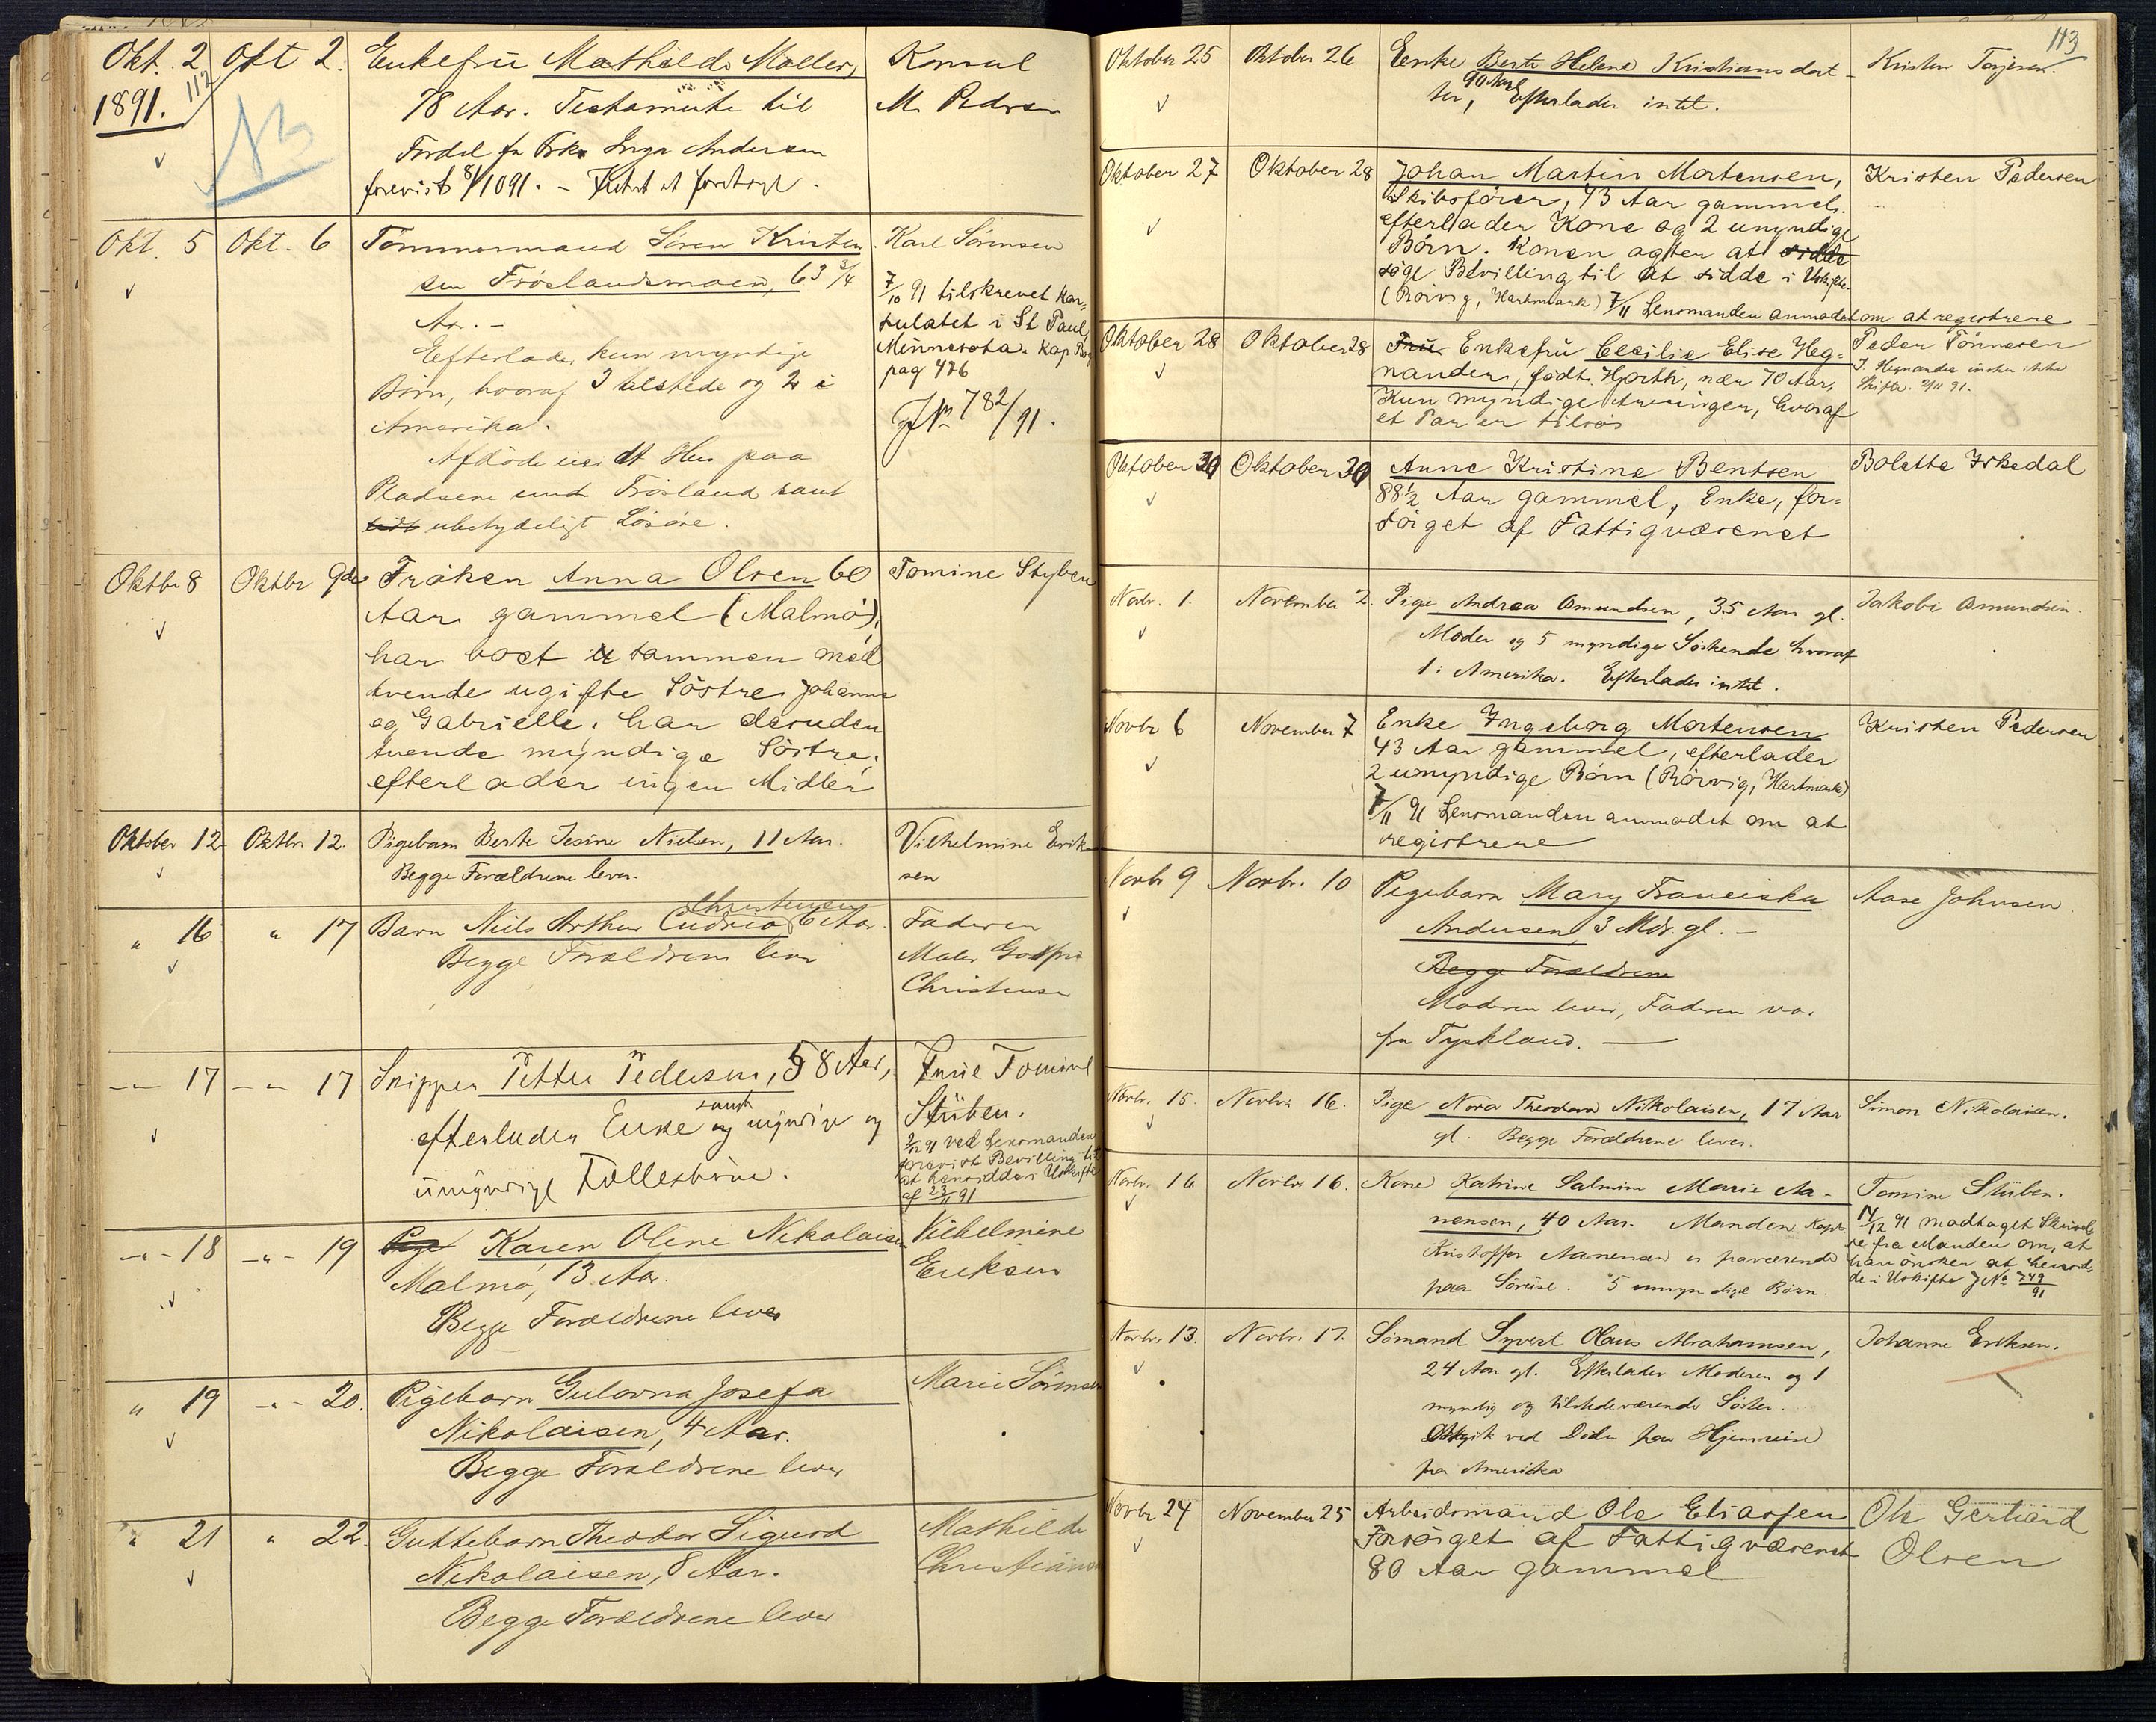 Okt. 2 Okt 2. Enkefrü Mathilde Møller, Konsul
1891. 112 78 Aar. Testamente til M. Pedersen
NB
Fordel for Frk. Inga Andersen
forevist 8/10 91. –
Okt. 5 Okt. 6 Tømmermand Søren Kristen Karl Sørensen
sen Frøslandsmoen, 63 3/4
Aar. –
7/10 91 tilskrevet Kon-
sulatet i St Paul
Minnesota. Kop Bog
pag 476
JN 782/91.
Efterlader kun myndige
Børn, hvoraf 3 tilstede og 2 i
Amerika.
Afdøde eied et Hus paa
Pladsen under Frøsland samt
lidt ubetydeligt Løsøre.
Oktbr 8 Oktbr 9de Frøken Anna Olsen 60 Tomine Styben
Aar gammel (Malmø),
har boet sammen med
tvende ugifte Søstre Johanne
og Gabrielle. har desuden
tvende myndige Søstre;
efterlader ingen Midler
Oktober 12 Oktbr. 12. Pigebarn Berte Jesine Nielsen, 11 Aar. Vilhelmine Erik-
Begge Forældrene lever. sen
Christensen
" 16 " 17 Barn Niels Arthur 6 Aar. Faderen
Begge Forældrene lever Maler Gotfred
Christensen
–"– 17 –"– 17 Skipper Petter Pedersen, 58 Aar, Tomine
efterlader Enke samt og myndige og Stüben.
umyndige Fællesbørn.
2/12 91 ved Lensmanden
forevist Bevilling til
at hensidde i Uskifte
af 23/11 91
–"– 18 –"– 19 Pige Karen Oline Nikolaisen Vilhelmine
Malmø, 13 Aar. Eriksen
Begge Forældrene lever
" 19 –"– 20. Pigebarn Gulovna Josefa Marie Sørensen
Nikolaisen, 4 Aar.
Begge Forældrene lever
" 21 " 22. Guttebarn Theodor Sigurd Mathilde
Nikolaisen, 8 Aar. Christiansen
Begge Forældrene lever
113
Oktober 25 Oktober 26 Enke Berte Helene Kristiansdat- Kristen Terjesen.
ter, 90 Aar Efterlader intet.
Oktober 27 Oktober 28 Johan Martin Mortensen, Kristen Pedersen
Skibsfører, 43 Aar gammel.
efterlader Kone og 2 umyndige
Børn. Konen agter at sidde
søge Bevilling til at sidde i Uskifte.
(Rørvig, Hartmark) 7/11 Lensmanden anmodet om at registrere
Oktober 28 Oktober 28 Frü Enkefrü Cecilie Elise Heg- Peder Tønnesen
nander, født Hjorth, nær 70 Aar,
J. Hegnander ønsker ikke
Skifte. 2/11 91.
Kun myndige Arvinger, hvoraf
et Par er tilsjøs
Oktober 30 Oktober 30 Anne Kristine Bentsen Bolette Igsedal
88 1/2 Aar gammel, Enke, for-
sørget af Fattigvæsenet
Novbr. 1. November 2. Pige Andrea Osmundsen, 35 Aar gl. Jakobi Osmundsen.
Moder og 5 myndige Søskende hvoraf
1 i Amerika. Efterlader intet.
Novbr 6 November 7 Enke Ingeborg Mortensen Kristen Pedersen
43 Aar gammel, efterlader
2 umyndige Børn (Rørvig, Hartmark)
7/11 91 Lensmanden anmodet om at
registrere
Novbr 9 Novbr. 10 Pigebarn Mary Franciska Aase Johnsen.
Andersen, 3 Mdr. gl. –
Begge Forældrene
Moderen lever, Faderen var
fra Tyskland. –
Novbr. 15. Novbr. 16. Pige Nora Theodora Nikolaisen, 17 Aar Simon Nikolaisen.
gl. Begge Forældrene lever.
Novbr. 16 Novbr. 16. Kone Katrine Salmine Marie Aa- Tomine Stüben.
nensen, 40 Aar. Manden Kapt.
Kristoffer Aanensen er fraværende
paa Søreise. 5 umyndige Børn.
14/12 91 modtaget Skrivel-
se fra Manden om, at
han ønsker at hensid-
de i Uskifte JNo 749/91
Novbr. 13. Novbr. 17. Sømand Syvert Olaus Abrahamsen, Johanne Eriksen.
24 Aar gl. Efterlader Moderen og 1
myndig og tilstedeværende Søster.
Afgik ved Døden paa Hjemreise
fra Amerika
Novbr 24 November 25 Arbeidsmand Ole Eliassen Ole Gerhard
Forsørget af Fattigvæsenet Olsen
80 Aar gammel